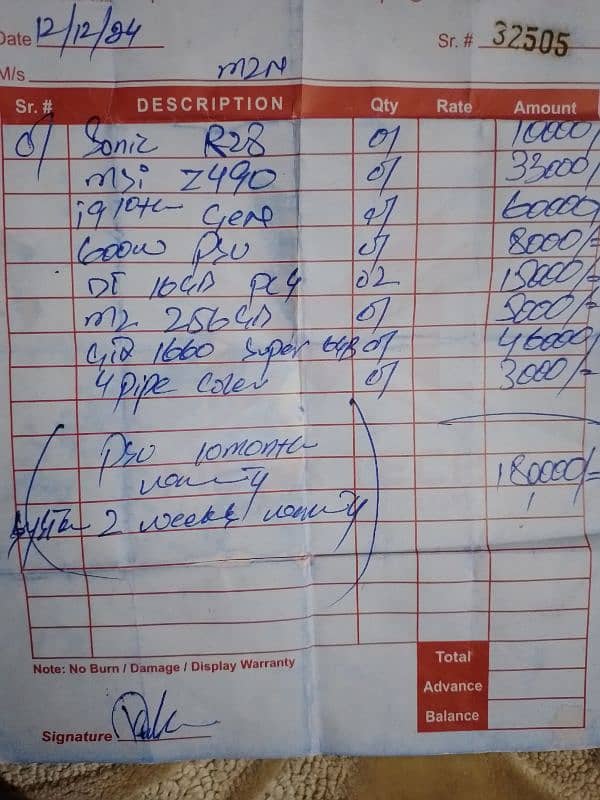 Date 12/12/24 Sr. # 32505
M/s
Sr. # DESCRIPTION Qty Rate Amount
01 Sonic R28 01 10000/
msi Z490 01 33000/
i9 10th Gene 01 60000
600w PSU 01 8000/-
16GB PC4 02 15000/-
M2 256GB 01 5000/-
GTX 1660 Super 6GB 01 46000/
4 pipe Coler 01 3000/-
PSU 10 month
180000/-
2 weeks
Note: No Burn / Damage / Display Warranty
Total
Advance
Balance
Signature